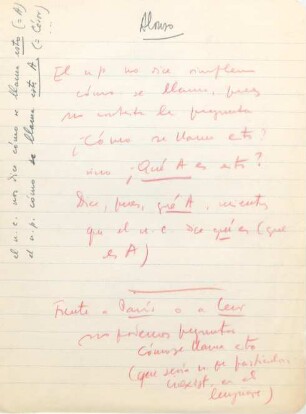 Alonso
El n.p. no dice simplem
cómo se llama, pues
no contesta la pregunta
¿Cómo se llama esto?
sino ¿Qué A es esto?
Dice, pues, qué A, mientras
que el n.c. dice qué es (que
es A)
Frente a París o a César
no podemos preguntar
Cómo se llama esto
(que sería un particular
inexist. en el
lenguaje)
el n.c. nos dice cómo se llama esto (= A)
el n.p. cómo se llama este A (= César)